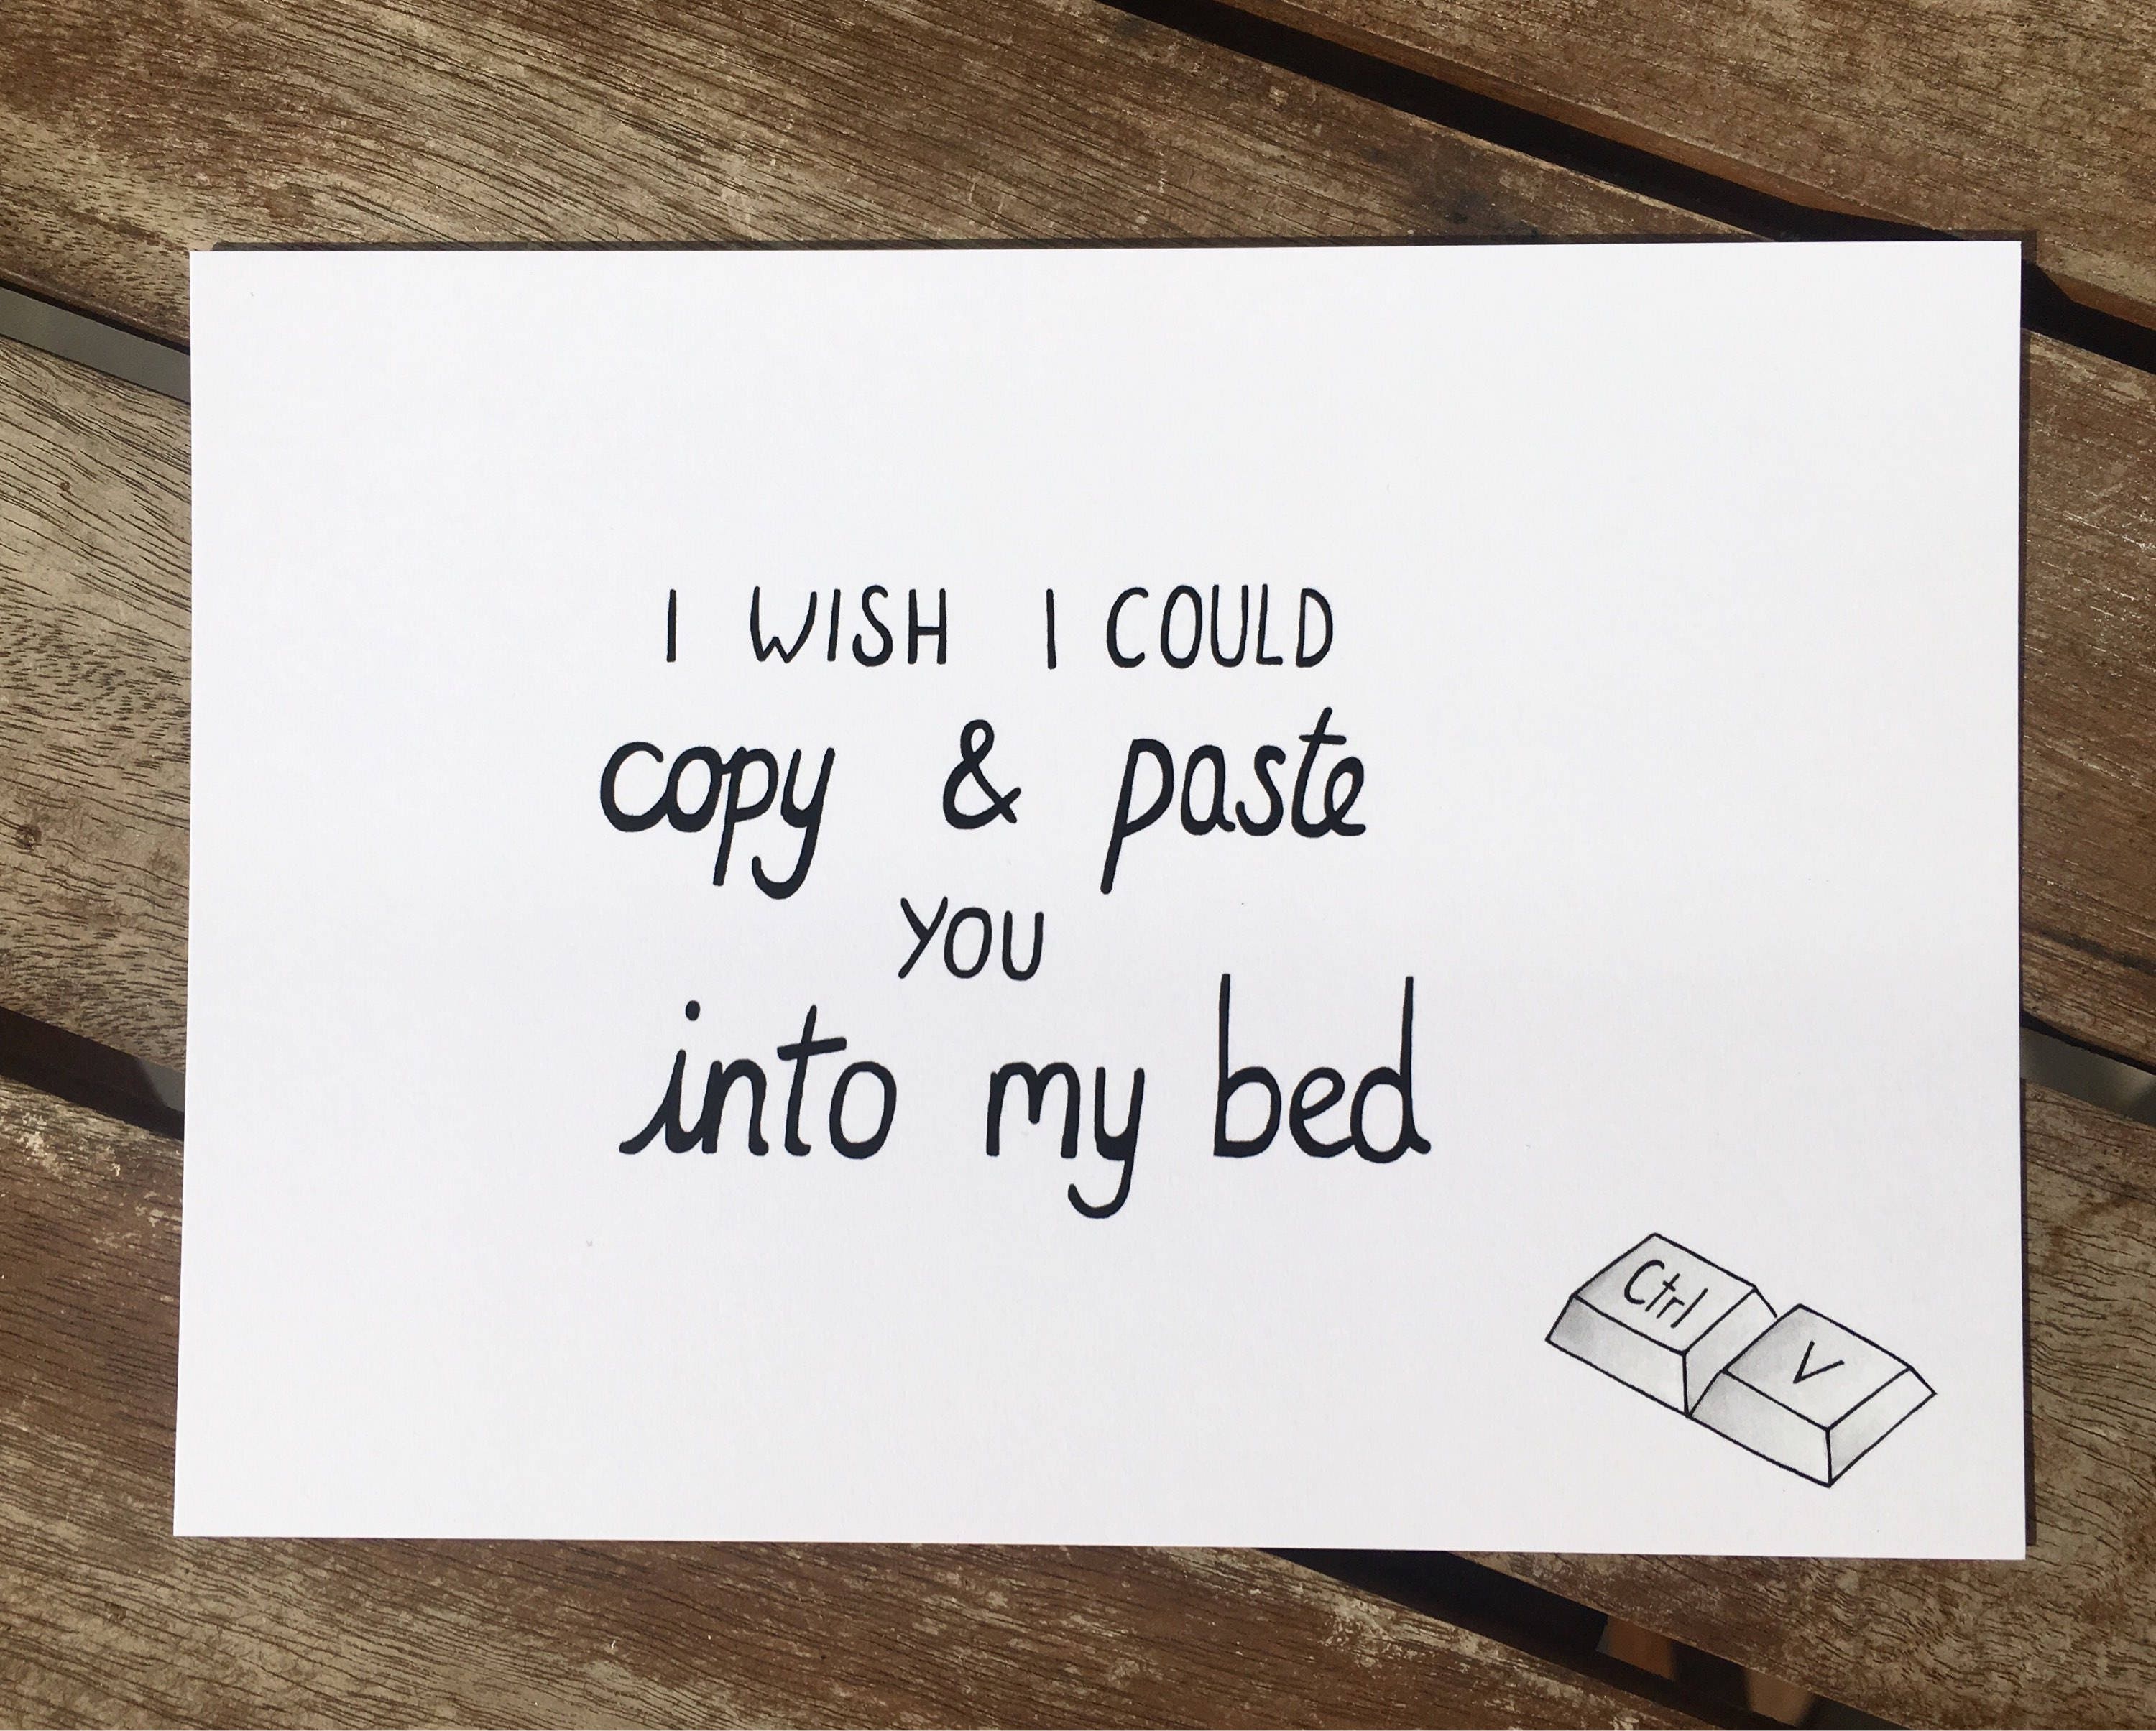 I WISH I COULD
copy & paste
YOU
into my bed
Ctrl
V